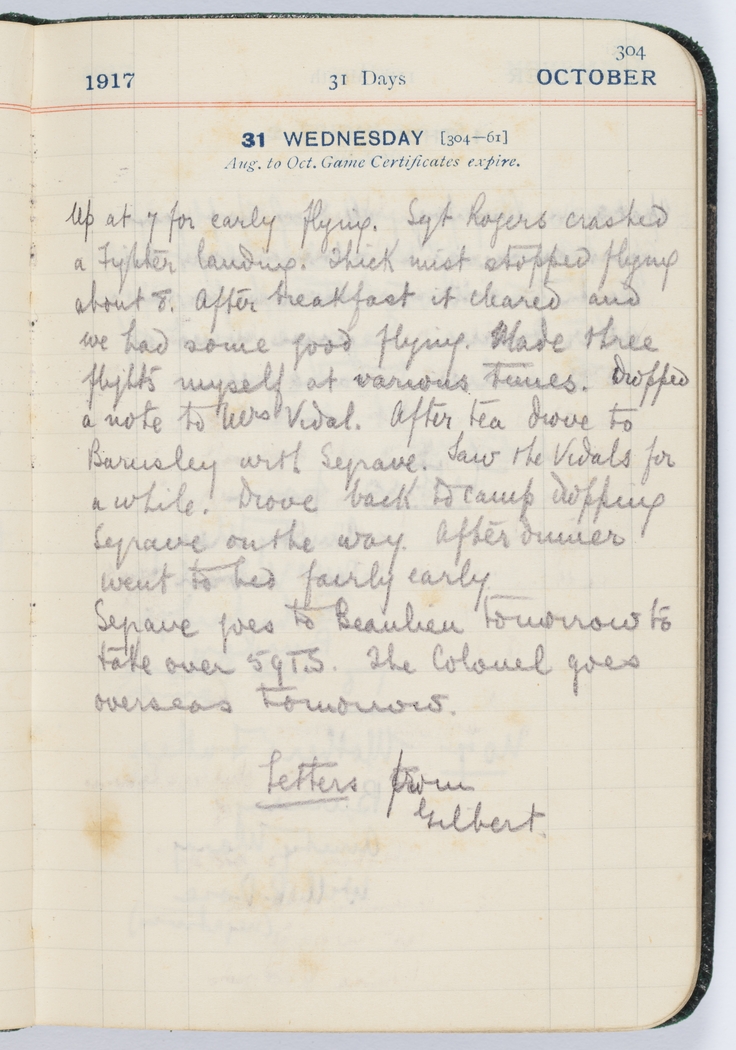 304
1917 31 Days OCTOBER
31 WEDNESDAY [304—61]
Aug. to Oct. Game Certificates expire.
Up at 7 for early flying. Sgt Rogers crashed
a Fighter landing. Thick mist stopped flying
about 8. After breakfast it cleared and
we had some good flying. Made three
flights myself at various times. Dropped
a note to Mrs Vidal. After tea drove to
Barnsley with Segrave. Saw the Vidals for
a while. Drove back to camp dropping
Segrave on the way. After dinner
went to bed fairly early
Segrave goes to Beaulieu tomorrow to
take over 59 T.S. The Colonel goes
overseas tomorrow.
Letters from
Gilbert.